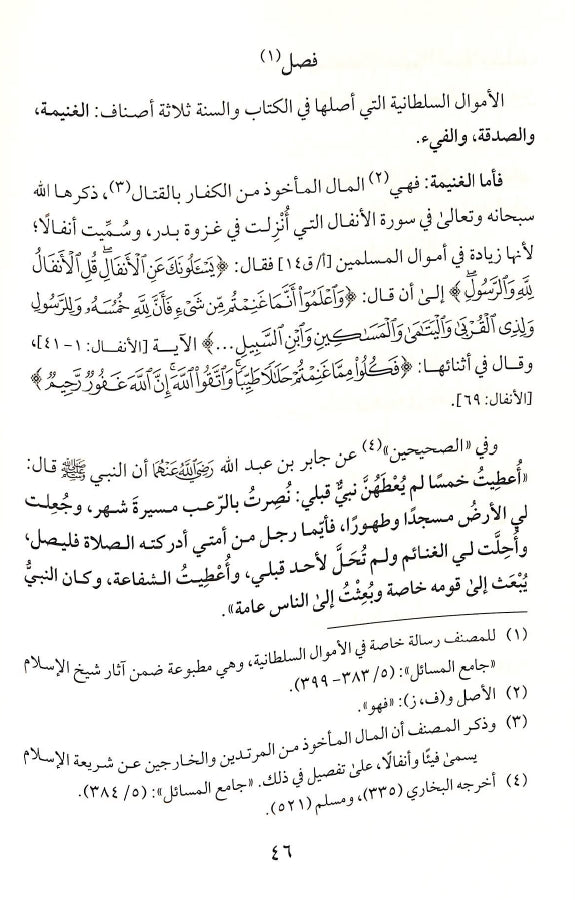 فصل(١)
الأموال السلطانية التي أصلها في الكتاب والسنة ثلاثة أصناف: الغنيمة،
والصدقة، والفيء.
فأما الغنيمة: فهي(٢) المال المأخوذ من الكفار بالقتال(٣)، ذكرها الله
سبحانه وتعالىٰ في سورة الأنفال التي أُنْزِلت في غزوة بدر، وسُمِّيت أنفالًا؛
لأنها زيادة في أموال المسلمين [أ/ق١٤] فقال: ﴿يَسْـَٔلُونَكَ عَنِ ٱلْأَنفَالِ ۖ قُلِ ٱلْأَنفَالُ
لِلَّهِ وَٱلرَّسُولِ ۖ﴾ إلىٰ أن قال: ﴿وَٱعْلَمُوٓا۟ أَنَّمَا غَنِمْتُم مِّن شَىْءٍ فَأَنَّ لِلَّهِ خُمُسَهُۥ وَلِلرَّسُولِ
وَلِذِى ٱلْقُرْبَىٰ وَٱلْيَتَـٰمَىٰ وَٱلْمَسَـٰكِينِ وَٱبْنِ ٱلسَّبِيلِ ...﴾ الآية [الأنفال: ١-٤١]،
وقال في أثنائها: ﴿فَكُلُوا۟ مِمَّا غَنِمْتُمْ حَلَـٰلًا طَيِّبًا ۚ وَٱتَّقُوا۟ ٱللَّهَ ۚ إِنَّ ٱللَّهَ غَفُورٌ رَّحِيمٌ﴾
[الأنفال: ٦٩].
وفي «الصحيحين»(٤) عن جابر بن عبد الله رَضِيَ اللَّهُ عَنْهُمَا أن النبي ﷺ قال:
«أُعطِيتُ خمسًا لم يُعْطَهُنَّ نبيٌّ قبلي: نُصِرتُ بالرّعب مسيرةَ شهر، وجُعِلت
لي الأرضُ مسجدًا وطهورًا، فأيّما رجل من أمتي أدركته الصلاة فليصل،
وأُحِلَّت لي الغنائم ولم تُحَلَّ لأحد قبلي، وأُعْطِيتُ الشفاعة، وكان النبيُّ
يُبْعَث إلىٰ قومه خاصة وبُعِثْتُ إلىٰ الناس عامة».
(١) للمصنف رسالة خاصة في الأموال السلطانية، وهي مطبوعة ضمن آثار شيخ الإسلام
«جامع المسائل»: (٥/ ٣٨٣-٣٩٩).
(٢) الأصل و(ف، ز): «فهو».
(٣) وذكر المصنف أن المال المأخوذ من المرتدين والخارجين عن شريعة الإسلام
يسمىٰ فيئًا وأنفالًا، علىٰ تفصيل في ذلك. «جامع المسائل»: (٥/ ٣٨٤).
(٤) أخرجه البخاري (٣٣٥)، ومسلم (٥٢١).
٤٦